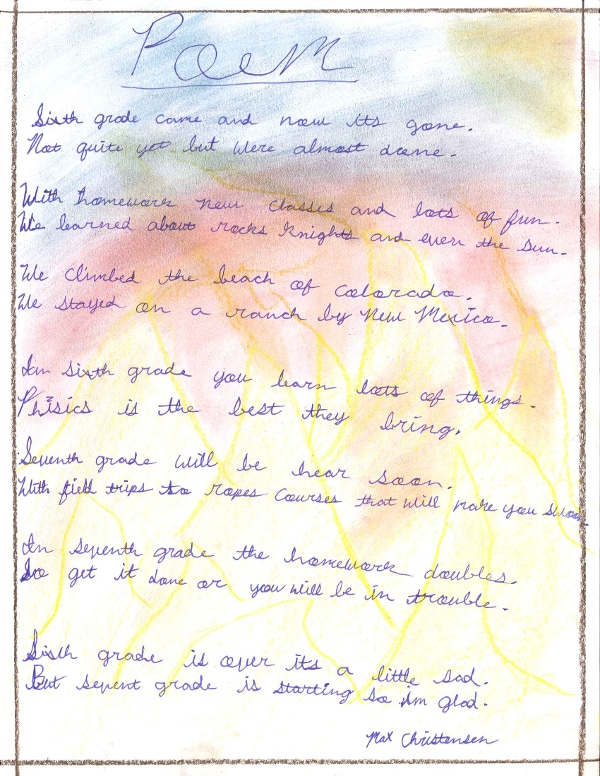 Poem
Sixth grade came and now its gone.
Not quite yet but were almost done.
With homework new classes and lots of fun.
We learned about rocks Knights and even the Sun.
We climbed the beach of Colorado.
We stayed on a ranch by New Mexico.
In sixth grade you learn lots of things.
Phisics is the best they bring.
Seventh grade will be hear soon.
With field trips to ropes courses that will make you swoon.
In seventh grade the homework doubles.
So get it done or you will be in trouble.
Sixth grade is over its a little sad.
But sevent grade is starting so im glad.
Max Christensen